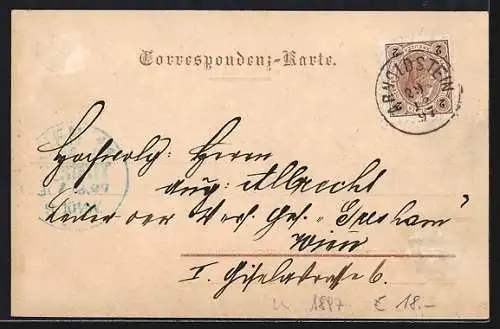 Correspondenz-Karte.
2 2
ARNOLDSTEIN
97
Hochwolg: Herrn
Aug: Albrecht
Leiter der Vers. Ges. "Gresham"
Wien
I. Giselastrasse 6.
1897 € 18.-